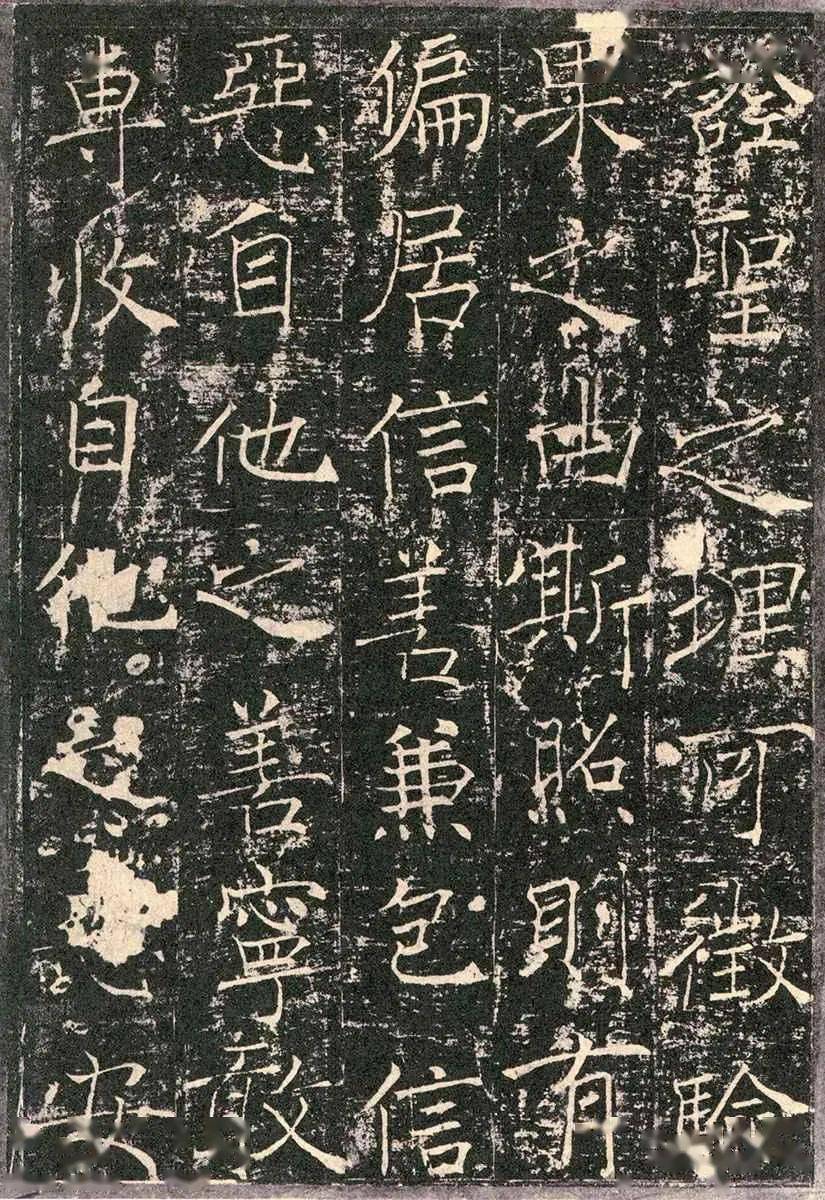 詮聖之理可徵驗
果之由斯照則有
偏居信善兼包信
惡自他之善寧敢
專收自他安